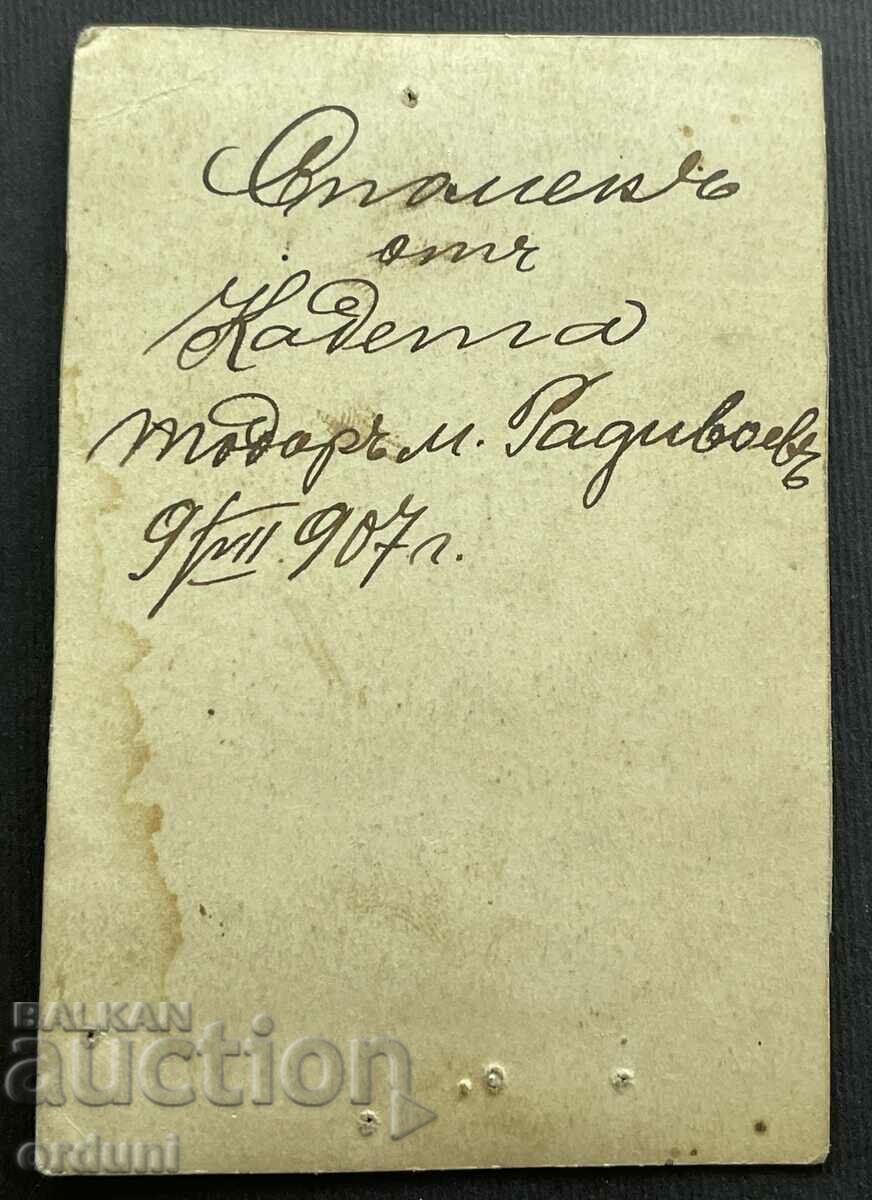 Споменъ
отъ
Кадета
Тодоръ М. Радивоевъ
9/VII. 907 г.
BALKAN
auction
orduni